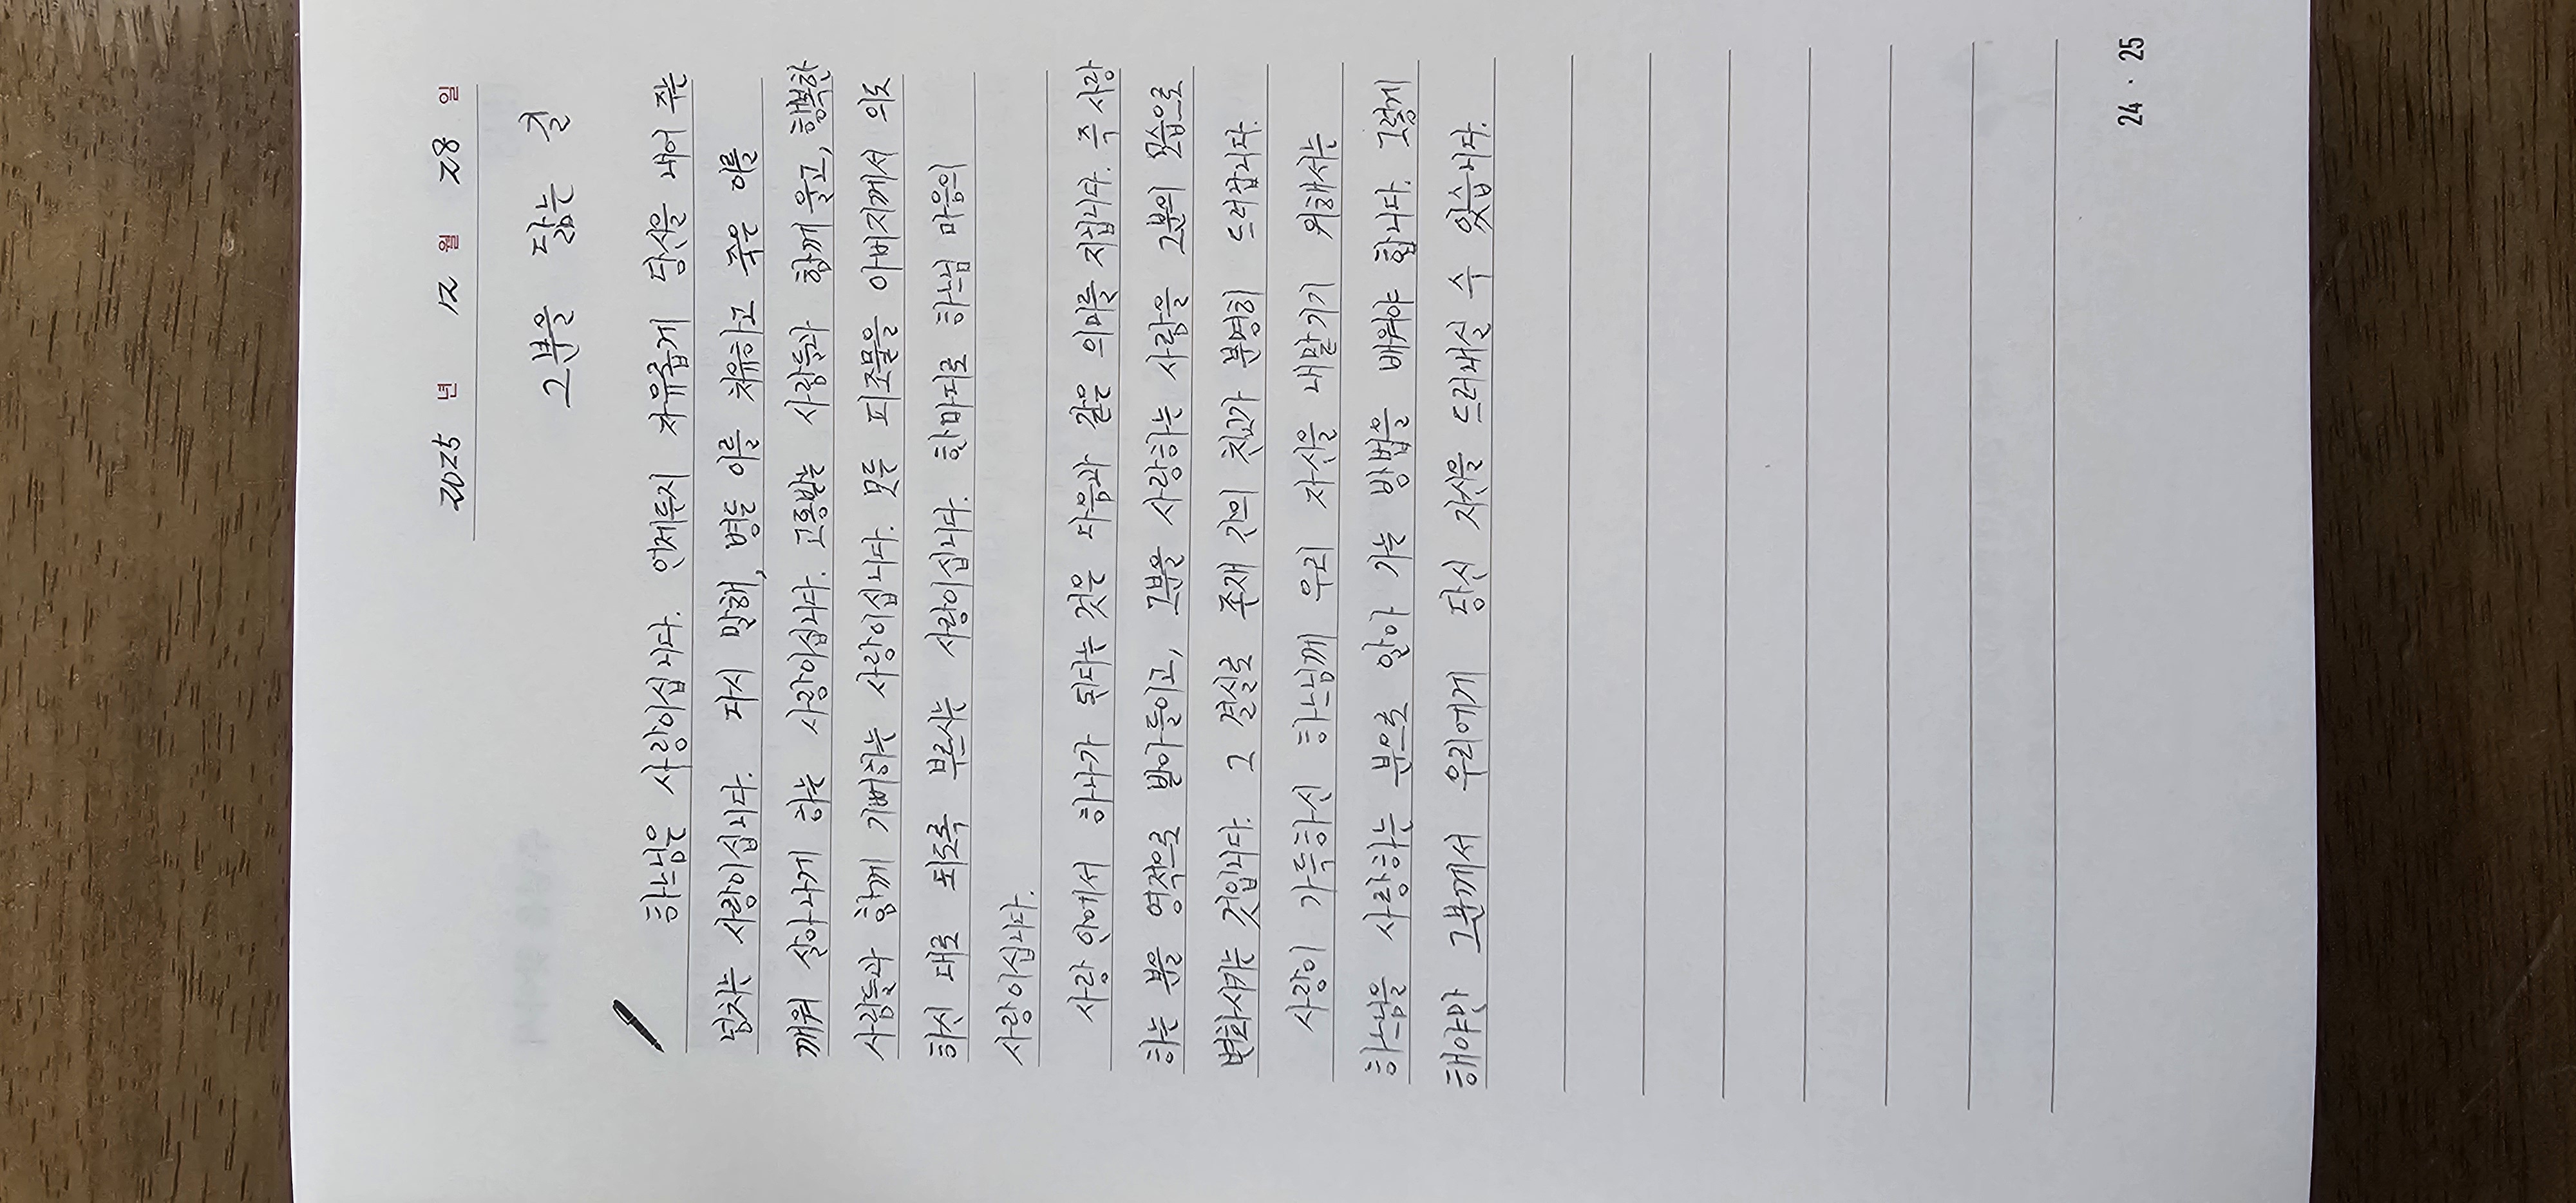 2025 년 12 월 28 일
그분을 닮는 길
하느님은 사랑이십니다. 언제든지 자유롭게 당신을 내어 주는
넘치는 사랑이십니다. 다시 말해, 병든 이를 치유하고 죽은 이를
깨워 살아나게 하는 사랑이십니다. 고통받는 사람들과 함께 울고, 행복한
사람들과 함께 기뻐하는 사랑이십니다. 모든 피조물을 아버지께서 의도
하신 대로 되도록 부르시는 사랑이십니다. 한마디로 하느님 마음의
사랑이십니다.
사랑 안에서 하나가 된다는 것은 다음과 같은 의미를 지닙니다. 즉 사랑
하는 분을 영적으로 받아들이고, 그분을 사랑하는 사람을 그분의 모습으로
변화시키는 것입니다. 그 결실로 존재 간의 친교가 분명히 드러납니다.
사랑이 가득하신 하느님께 우리 자신을 내맡기기 위해서는
하느님을 사랑하는 분으로 알아 가는 방법을 배워야 합니다. 그렇게
해야만 그분께서 우리에게 당신 자신을 드러내실 수 있습니다.
24 · 25